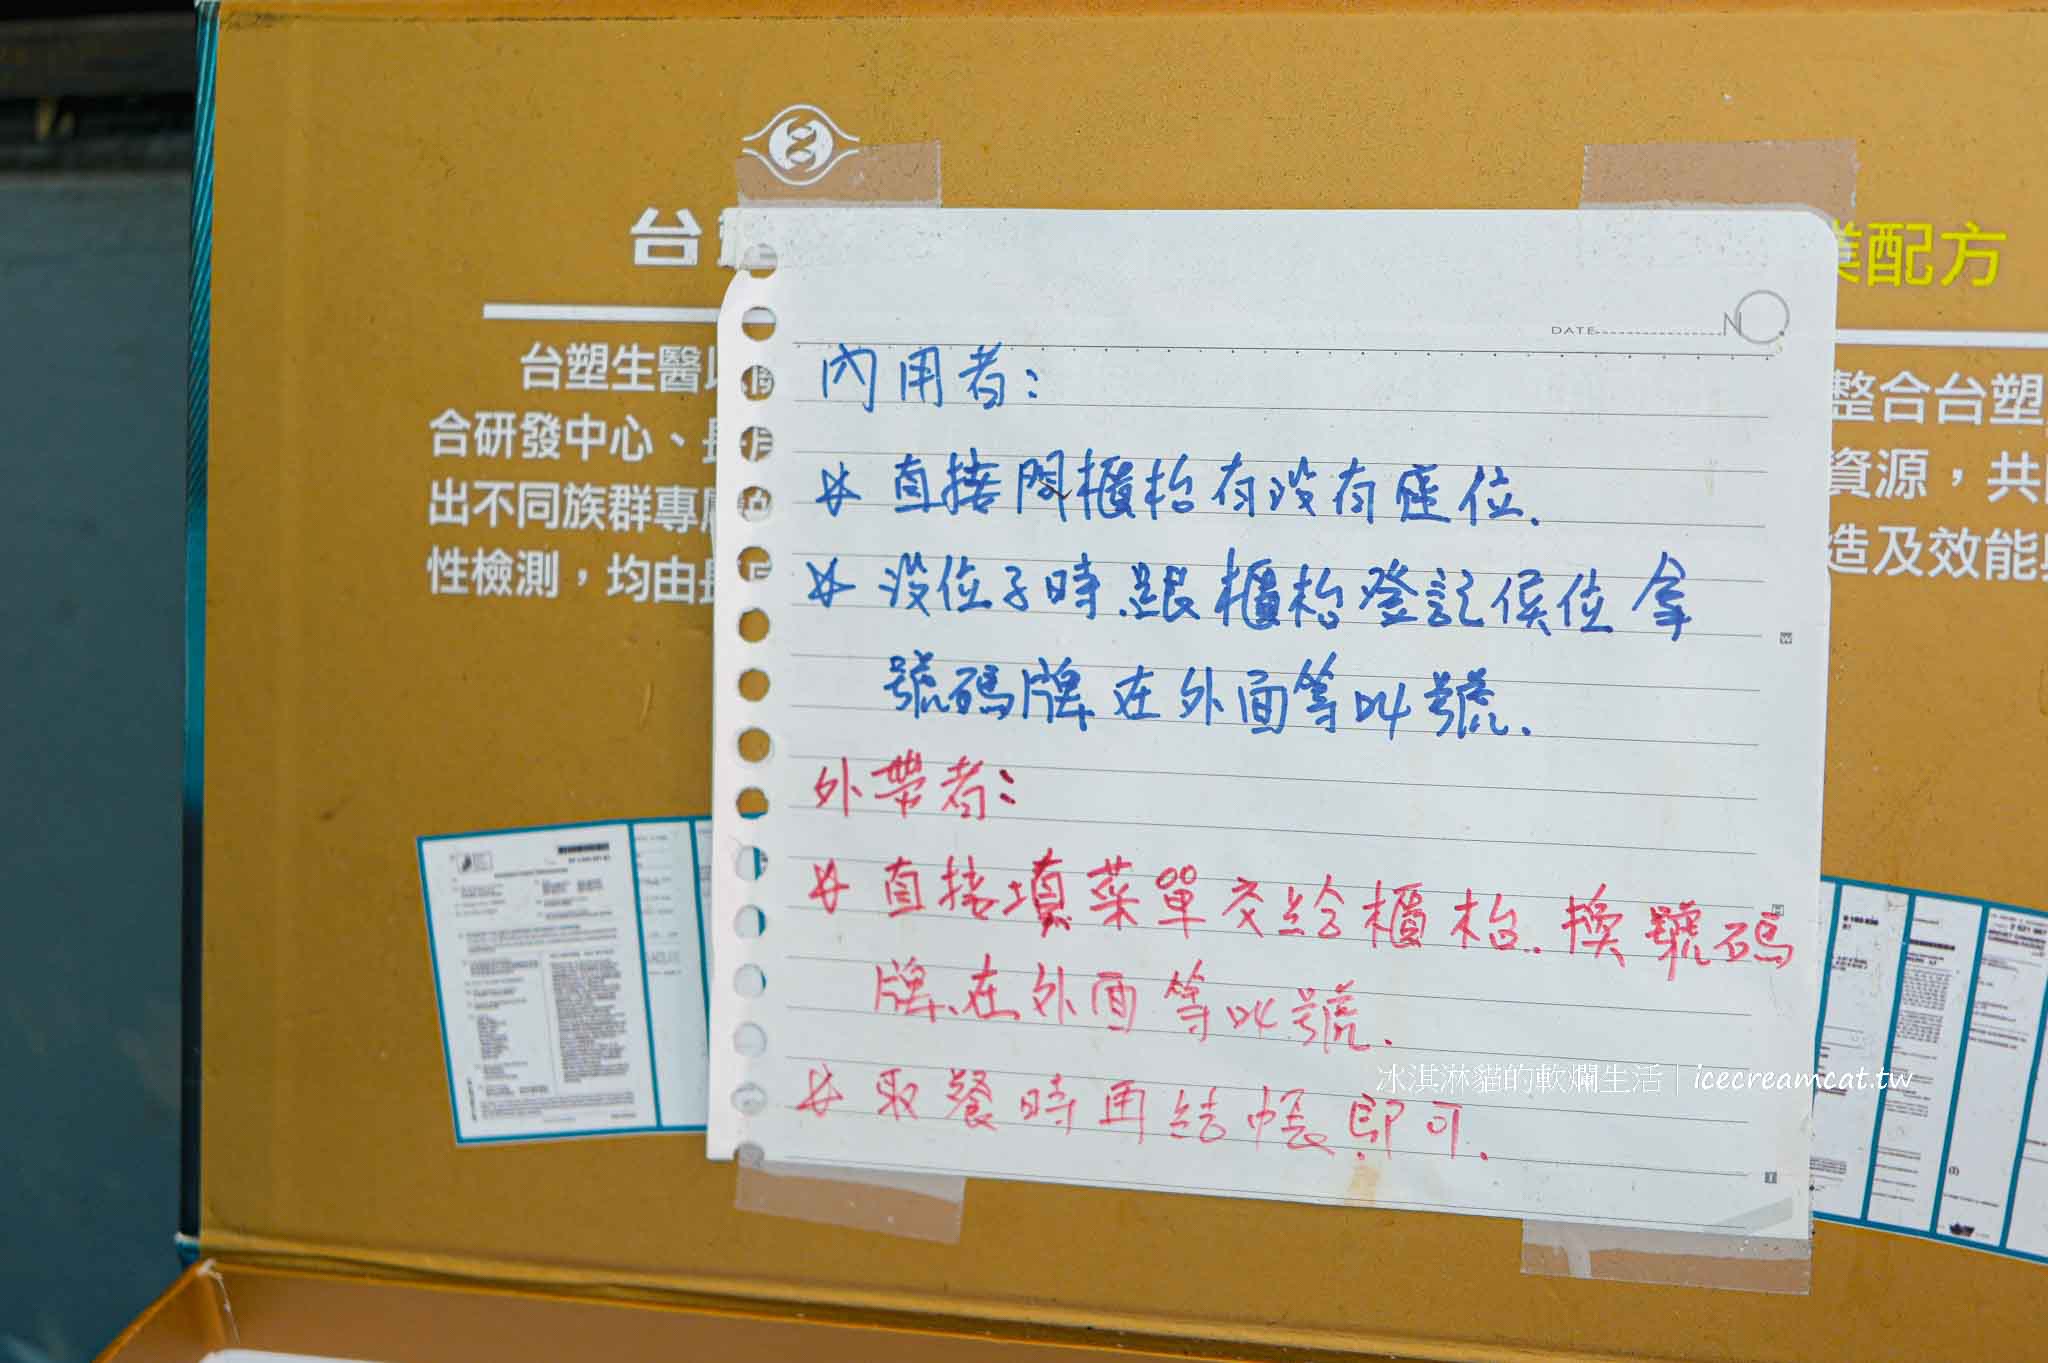 台
業配方
台塑生醫以
合研發中心、長
出不同族群專屬
性檢測，均由長
整合台塑
資源，共同
造及效能與
DATE
NO.
內用者：
☆ 直接問櫃枱有没有座位.
☆ 没位子時.跟櫃枱登記候位拿
號碼牌.在外面等叫號.
外帶者：
☆ 直接填菜單交給櫃枱.換號碼
牌.在外面等叫號.
☆ 取餐時再結帳.即可.
冰淇淋貓的軟爛生活｜icecreamcat.tw